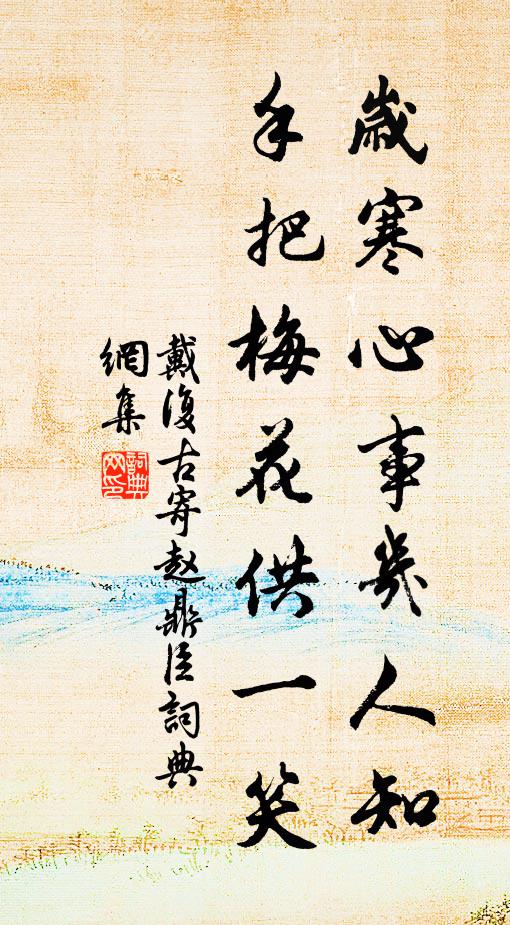 歲寒心事幾人知
手把梅花供一笑
戴復古寄趙鼎臣詞典
網集
詞典網印